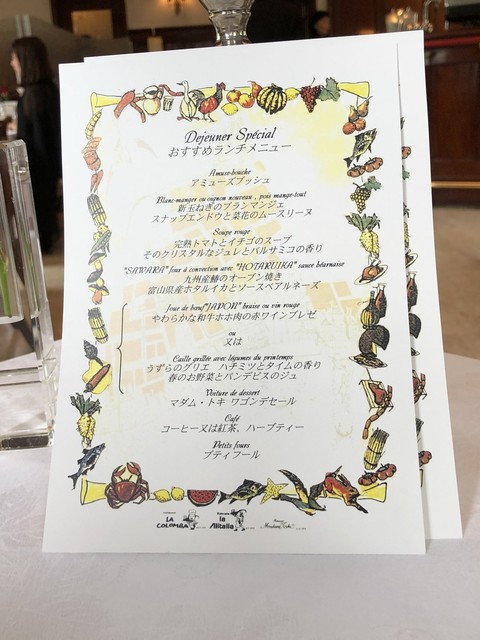 Dejeuner Spécial
おすすめランチメニュー
Amuse-bouche
アミューズブッシュ
Blanc-manger ou oignon nouveau, pois mange-tout
新玉ねぎのブランマンジェ
スナップエンドウと菜花のムースリーヌ
Soupe rouge
完熟トマトとイチゴのスープ
そのクリスタルなジュレとバルサミコの香り
"SAWARA" four à convection avec "HOTARUIKA" sauce béarnaise
九州産鰆のオーブン焼き
富山県産ホタルイカとソースベアルネーズ
Joue de bœuf "JAPON" braise ou vin rouge
やわらかな和牛ホホ肉の赤ワインブレゼ
ou
又は
Caille grillée avec légumes du printemps
うずらのグリエ ハチミツとタイムの香り
春のお野菜とパンデピスのジュ
Voiture de dessert
マダム・トキ ワゴンデセール
Café
コーヒー又は紅茶、ハーブティー
Petits fours
プティフール
LA COLOMBA
la Alitalia